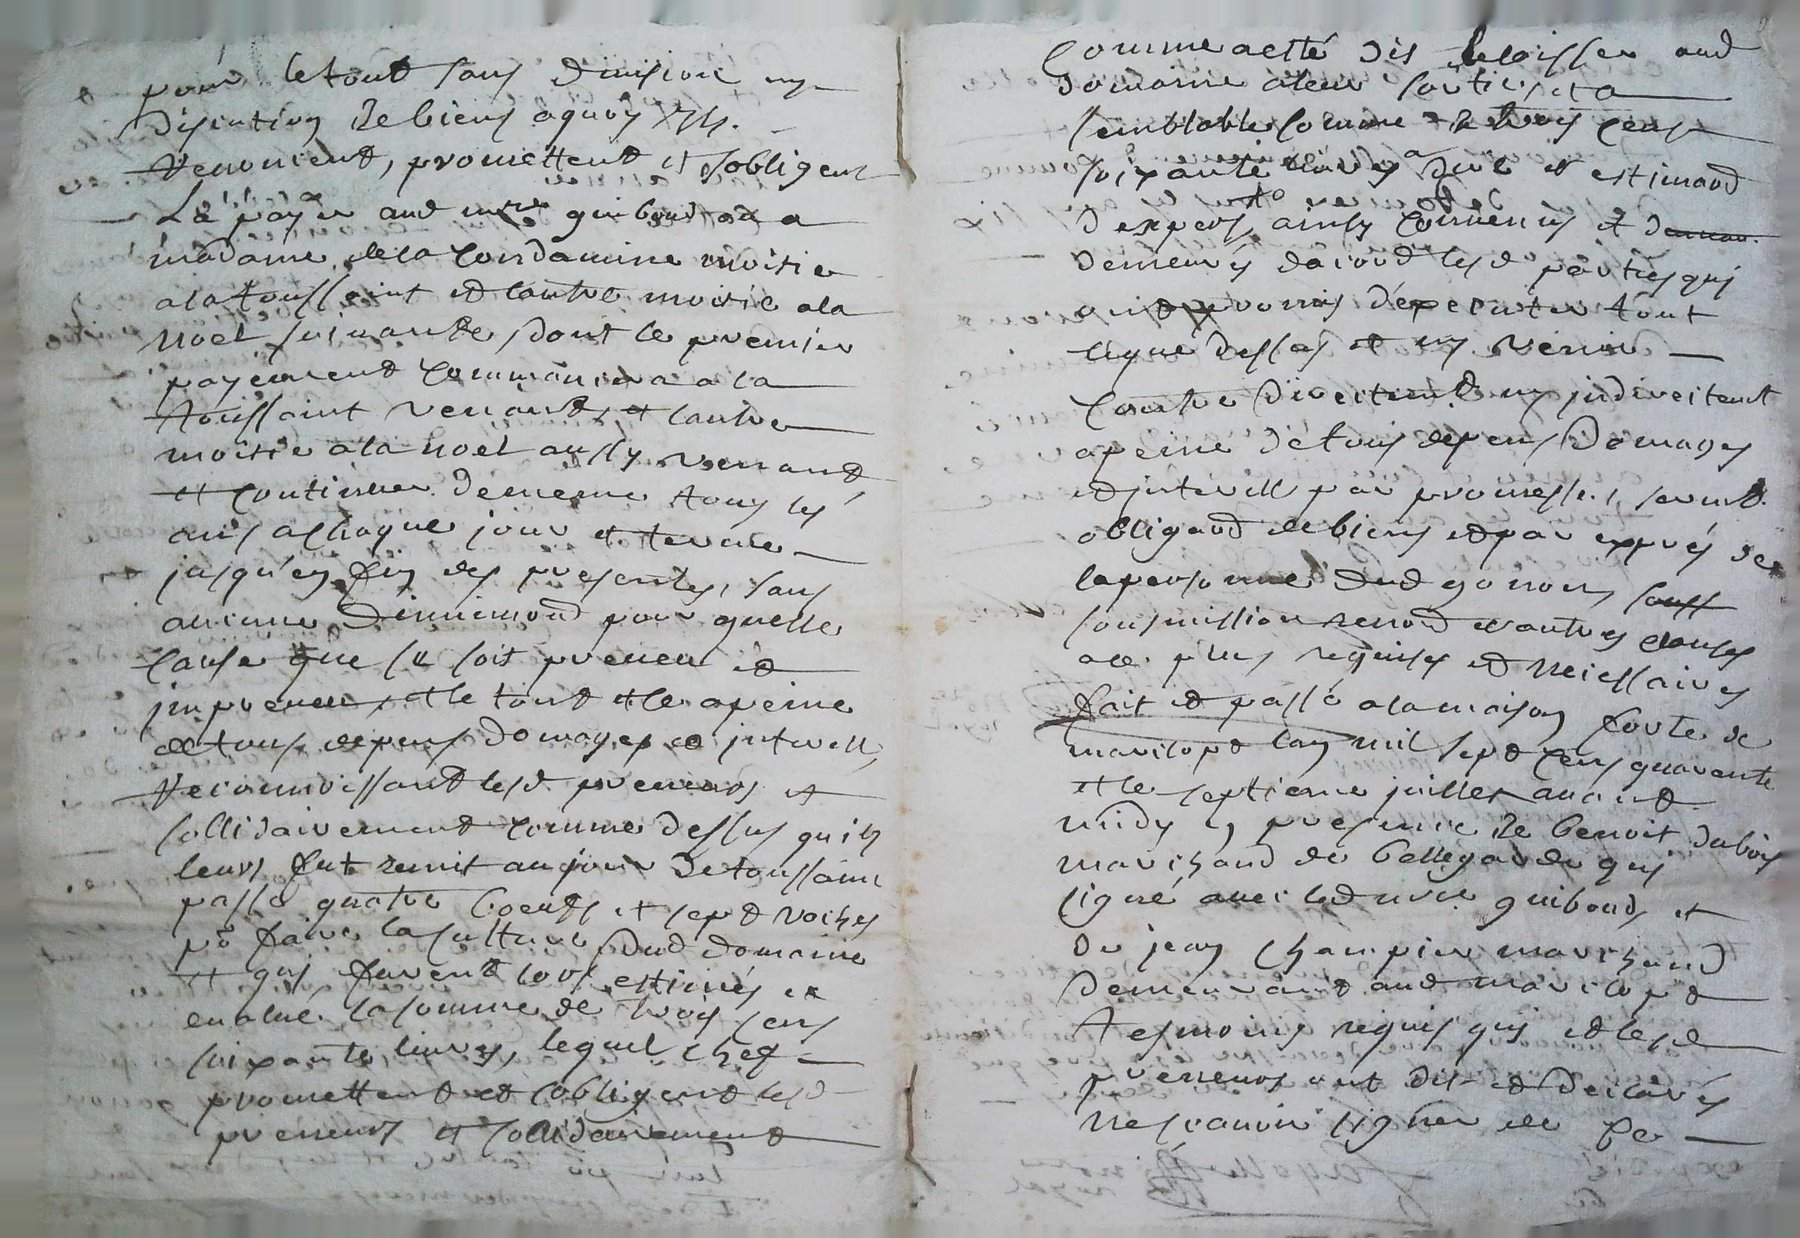 pour le tout sans division ny
discution de biens aquoy ils
renoncent, promettent et sobligent
La payer aud mre guiboud ou a
madame de la Condamine moitie
a la toussaint et lautre moitié a la
noel suivante, dont le premier
payement commancera a la
toussaint venant, et lautre
moitié a la noel aussy venant
et continuer de meme tous les
ans a chaque jour et terme
jusqu'en fin des presentes, sans
aucune diminuon pour quelle
cause que se soit preveu et
impreveu, et le tout a peine
de tous depens domages et interest,
reconnoissant lesd preneurs et
sollidairement comme dessus quil
leurs fut remit au jour de toussaint
passé quatre boeufs et sept vaches
pr faire la culture dud domaine
et qui furent lors estimés et
evalué la somme de trois cens
soixante livres, lequel chef
promettent et sobligent lesd
preneurs et sollidairement
Comme a esté dit de laisser aud
domaine a leur sortie, et a
semblable somme de trois cens
soixante livres a dire et estimaon
dexpers, ainsy convenus et
demeurés dacord lesd parties qui
ont promis dexecuter tout
ligne dessus et ny venir
Contre directement ny indirectement
a peine de tous depens domages
et interest par promesse, serment
obligaon de biens et par exprés de
la personne dud gonon
sousmission renon et autres clauses
a ce plus requises et necessaires
fait et passé a la maison forte de
marclopt lan mil sept cens quarante
et le septieme juillet avant
midy en presence de benoit dubois
marchand de bellegarde qui
signé avec led mre guiboud, et
de jean Champier marchand
demeurant aud marclopt
tesmoins requis qui et lesd
preneurs ont dit et declarés
ne scavoir signer de ce